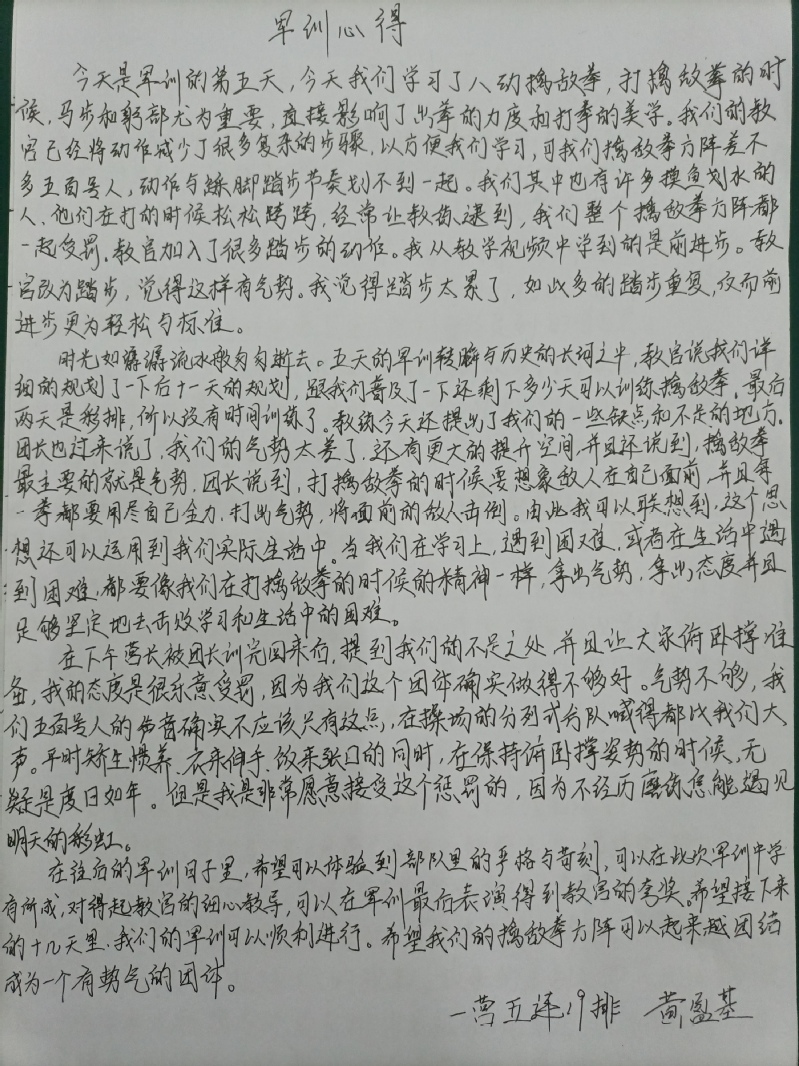 军训心得
今天是军训的第五天，今天我们学习了八动擒敌拳，打擒敌拳的时
候，马步和躬部尤为重要，直接影响了出拳的力度和打拳的美学。我们的教
官已经将动作减少了很多复杂的步骤，以方便我们学习，可我们擒敌拳方阵差不
多五百号人，动作与跺脚踏步节奏划不到一起。我们其中也有许多摸鱼划水的
人，他们在打的时候松松跨跨，经常让教官逮到，我们整个擒敌拳方阵都
一起受罚，教官加入了很多踏步的动作。我从教学视频中学到的是前进步。教
官改为踏步，觉得这样有气势。我觉得踏步太累了，如此多的踏步重复，反而前
进步更为轻松与标准。
时光如潺潺流水般匆匆逝去。五天的军训转瞬与历史的长河之中，教官说我们详
细的规划了一下后十一天的规划，跟我们普及了一下还剩下多少天可以训练擒敌拳，最后
两天是彩排，所以没有时间训练了。教练今天还提出了我们的一些缺点和不足的地方。
团长也过来说了，我们的气势太差了，还有更大的提升空间，并且还说到，擒敌拳
最主要的就是气势，团长说到，打擒敌拳的时候要想象敌人在自己面前，并且每
一拳都要用尽自己全力，打出气势，将面前的敌人击倒。由此我可以联想到，这个思
想还可以运用到我们实际生活中。当我们在学习上，遇到困难，或者在生活中遇
到困难，都要像我们在打擒敌拳的时候的精神一样，拿出气势，拿出态度并且
足够坚定地去击败学习和生活中的困难。
在下午营长被团长训完回来后，提到我们的不足之处，并且让大家俯卧撑准
备，我的态度是很乐意受罚，因为我们这个团体确实做得不够好。气势不够，我
们五百号人的声音确实不应该只有这点，在操场的分列式分队喊得都比我们大
声。平时娇生惯养、衣来伸手、饭来张口的同时，在保持俯卧撑姿势的时候，无
疑是度日如年。但是我是非常愿意接受这个惩罚的，因为不经历磨练怎能遇见
明天的彩虹。
在往后的军训日子里，希望可以体验到部队里的严格与苛刻，可以在此次军训中学
有所成，对得起教官的细心教导，可以在军训最后表演得到教官的夸奖。希望接下来
的十几天里，我们的军训可以顺利进行。希望我们的擒敌拳方阵可以起来越团结
成为一个有势气的团体。
一营五连19排 黄盈基